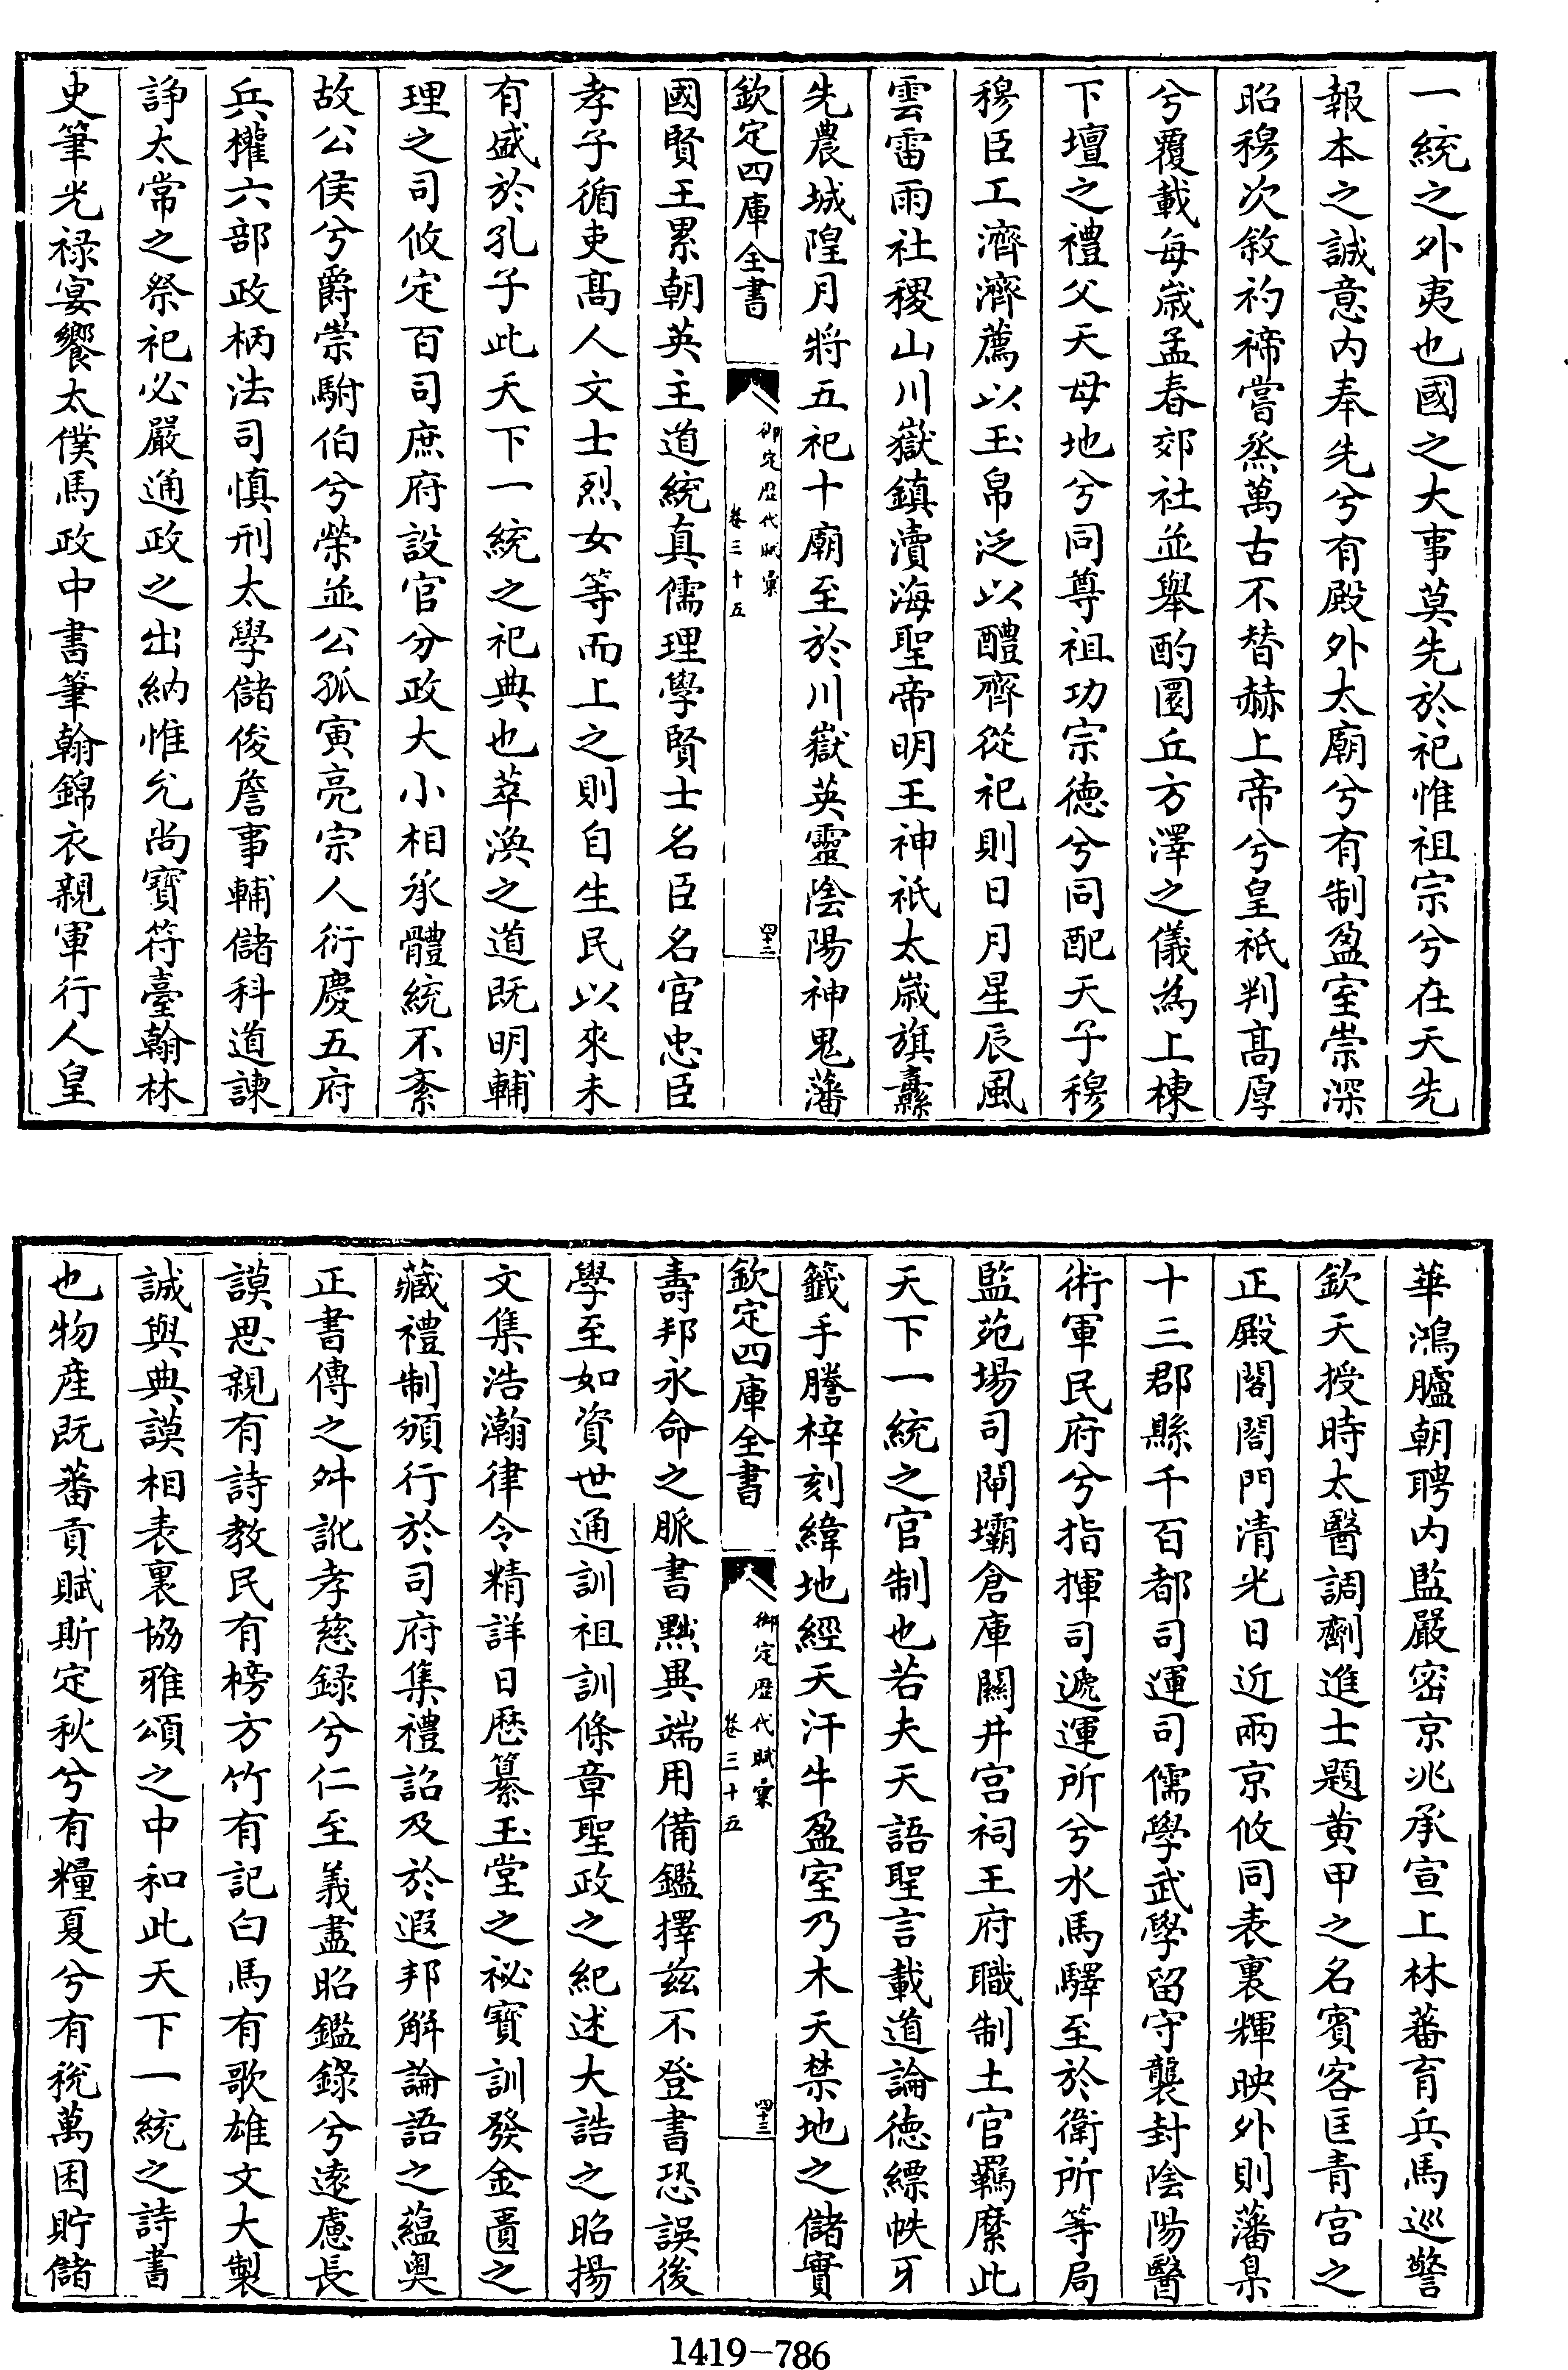 一統之外夷也國之大事莫先於祀惟祖宗兮在天先
報本之誠意内奉先兮有殿外太廟兮有制盈室崇深
昭穆次敘礿禘嘗烝萬古不替赫上帝兮皇祇判髙厚
兮覆載每嵗孟春郊社並舉酌圜丘方澤之儀為上棟
下壇之禮父天母地兮同尊祖功宗徳兮同配天子穆
穆臣工濟濟薦以玉帛泛以醴齊從祀則日月星辰風
雲雷雨社稷山川嶽鎮瀆海聖帝明王神祇太嵗旗纛
先農城隍月將五祀十廟至於川嶽英靈陰陽神鬼藩
欽定四庫全書
御定歴代賦彙
卷三十五
四十二
國賢王累朝英主道統真儒理學賢士名臣名宦忠臣
孝子循吏髙人文士烈女等而上之則自生民以來未
有盛於孔子此天下一統之祀典也萃渙之道既明輔
理之司攸定百司庶府設官分政大小相承體統不紊
故公侯兮爵崇駙伯兮榮並公孤寅亮宗人衍慶五府
兵權六部政柄法司慎刑太學儲俊詹事輔儲科道諫
諍太常之祭祀必嚴通政之出納惟允尚寶符臺翰林
史筆光禄宴饗太僕馬政中書筆翰錦衣親軍行人皇
華鴻臚朝聘内監嚴密京兆承宣上林蕃育兵馬巡警
欽天授時太醫調劑進士題黄甲之名賓客匡青宫之
正殿閣閤門清光日近兩京攸同表裏輝映外則藩臬
十三郡縣千百都司運司儒學武學留守襲封陰陽醫
術軍民府兮指揮司遞運所兮水馬驛至於衛所等局
監苑塲司閘壩倉庫闗井宫祠王府職制土官羈縻此
天下一統之官制也若夫天語聖言載道論徳縹帙牙
籤手謄梓刻緯地經天汗牛盈室乃木天禁地之儲實
欽定四庫全書
御定歴代賦彙
卷三十五
四十三
壽邦永命之脈書黜異端用備鑑擇兹不登書恐誤後
學至如資世通訓祖訓條章聖政之紀述大誥之昭揚
文集浩瀚律令精詳日厯纂玉堂之祕寶訓發金匱之
藏禮制頒行於司府集禮詔及於遐邦解論語之藴奥
正書傳之舛訛孝慈録兮仁至義盡昭鑑錄兮逺慮長
謨思親有詩教民有榜方竹有記白馬有歌雄文大製
誠與典謨相表裏協雅頌之中和此天下一統之詩書
也物産既蕃貢賦斯定秋兮有糧夏兮有税萬囷貯儲
1419-786